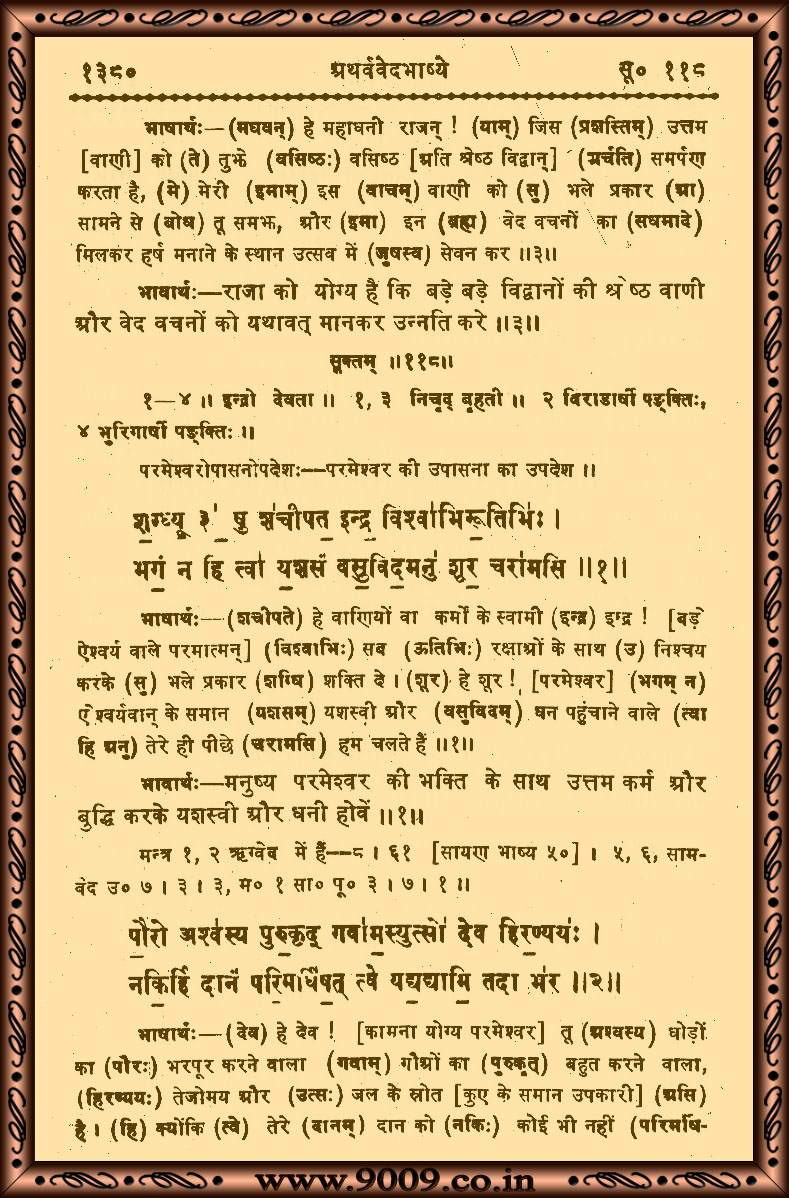 १३८० अथर्ववेदभाष्ये सू० ११८
भाषार्थः—(मघवन्) हे महाधनी राजन् ! (याम्) जिस (प्रशस्तिम्) उत्तम
[वाणी] को (ते) तुझे (वसिष्ठः) वसिष्ठ [अति श्रेष्ठ विद्वान्] (अर्चति) समर्पण
करता है, (मे) मेरी (इमाम्) इस (वाचम्) वाणी को (सु) भले प्रकार (आ)
सामने से (बोध) तू समझ, और (इमा) इन (ब्रह्म) वेद वचनों का (सधमादे)
मिलकर हर्ष मनाने के स्थान उत्सव में (जुषस्व) सेवन कर ॥३॥
भावार्थः—राजा को योग्य है कि बड़े बड़े विद्वानों की श्रेष्ठ वाणी
और वेद वचनों को यथावत् मानकर उन्नति करे ॥३॥
सूक्तम् ॥११८॥
१—४ ॥ इन्द्रो देवता ॥ १, ३ निचृद् बृहती ॥ २ विराडार्षी पङ्क्तिः,
४ भुरिगार्षी पङ्क्तिः ॥
परमेश्वरोपासनोपदेशः—परमेश्वर की उपासना का उपदेश ॥
श॒ग्ध्यू॒ ३॒॑ षु श॑चीपत॒ इन्द्र॒ विश्वा॑भिरू॒तिभिः॑ ।
भगं॒ न हि त्वा॑ य॒शसं॑ वसु॒विद॒मनु॑ शूर॒ चरा॑मसि ॥१॥
भाषार्थः—(शचीपते) हे वाणियों वा कर्मों के स्वामी (इन्द्र) इन्द्र ! [बड़े
ऐश्वर्य वाले परमात्मन्] (विश्वाभिः) सब (ऊतिभिः) रक्षाओं के साथ (उ) निश्चय
करके (सु) भले प्रकार (शग्धि) शक्ति दे । (शूर) हे शूर ! [परमेश्वर] (भगम् न)
ऐश्वर्यवान् के समान (यशसम्) यशस्वी और (वसुविदम्) धन पहुंचाने वाले (त्वा
हि अनु) तेरे ही पीछे (चरामसि) हम चलते हैं ॥१॥
भावार्थः—मनुष्य परमेश्वर की भक्ति के साथ उत्तम कर्म और
बुद्धि करके यशस्वी और धनी होवें ॥१॥
मन्त्र १, २ ऋग्वेद में हैं—८ । ६१ [सायण भाष्य ५०] । ५, ६, साम-
वेद उ० ७ । ३ । ३, म० १ सा० पू० ३ । ७ । १ ॥
पौ॒रो अश्व॑स्य पुरु॒कृद् गवा॑म॒स्युत्सो॑ देव हिर॒ण्ययः॑ ।
नकि॒र्हि दानं॑ परि॒मर्धि॑ष॒त् त्वे यद्य॒द्यामि॒ तदा भ॑र ॥२॥
भाषार्थः—(देव) हे देव ! [कामना योग्य परमेश्वर] तू (अश्वस्य) घोड़ों
का (पौरः) भरपूर करने वाला (गवाम्) गौओं का (पुरुकृत्) बहुत करने वाला,
(हिरण्ययः) तेजोमय और (उत्सः) जल के स्रोत [कुए के समान उपकारी] (असि)
है । (हि) क्योंकि (त्वे) तेरे (दानम्) दान को (नकिः) कोई भी नहीं (परिमर्धि-
www.9009.co.in